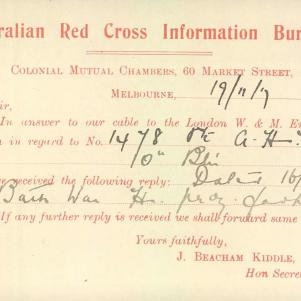 ralian Red Cross Information Bur
Colonial Mutual Chambers, 60 Market Street,
Melbourne, 19/11/17
ir,
In answer to our cable to the London W. & M. E
n in regard to No. 1478 Pte A. H.
10th Bn
e received the following reply: Dated 16/
Bath War Ho.
If any further reply is received we shall forward same
Yours faithfully,
J. Beacham Kiddle,
Hon Secre